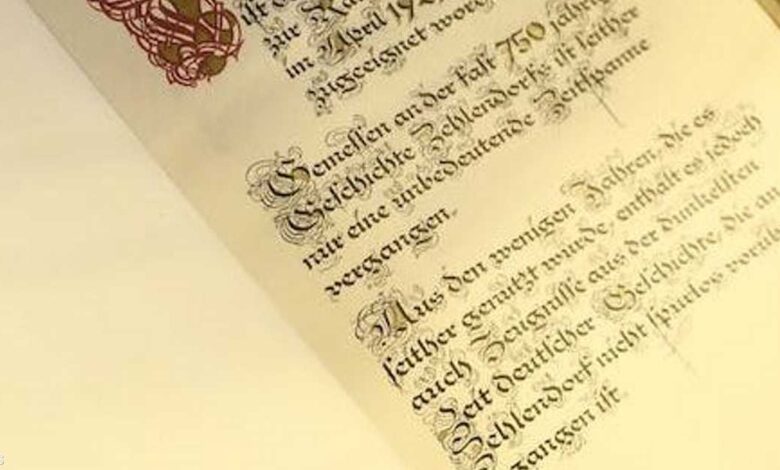 ist d
zur Ra
im April 19
zugeeignet wor
Gemessen an der fast 750 jährig
Geschichte Zehlendorfs ist seither
nur eine unbedeutende Zeitspanne
vergangen.
Aus den wenigen Jahren, die es
seither genutzt wurde, enthält es jedoch
auch Zeugnisse aus der dunkelsten
Zeit deutscher Geschichte, die an
Zehlendorf nicht spurlos vorüb
gangen ist.